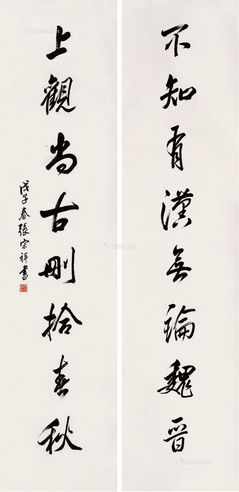 不知有漢無論魏晉
上觀尚古刪拾春秋
戊子春張宗祥書